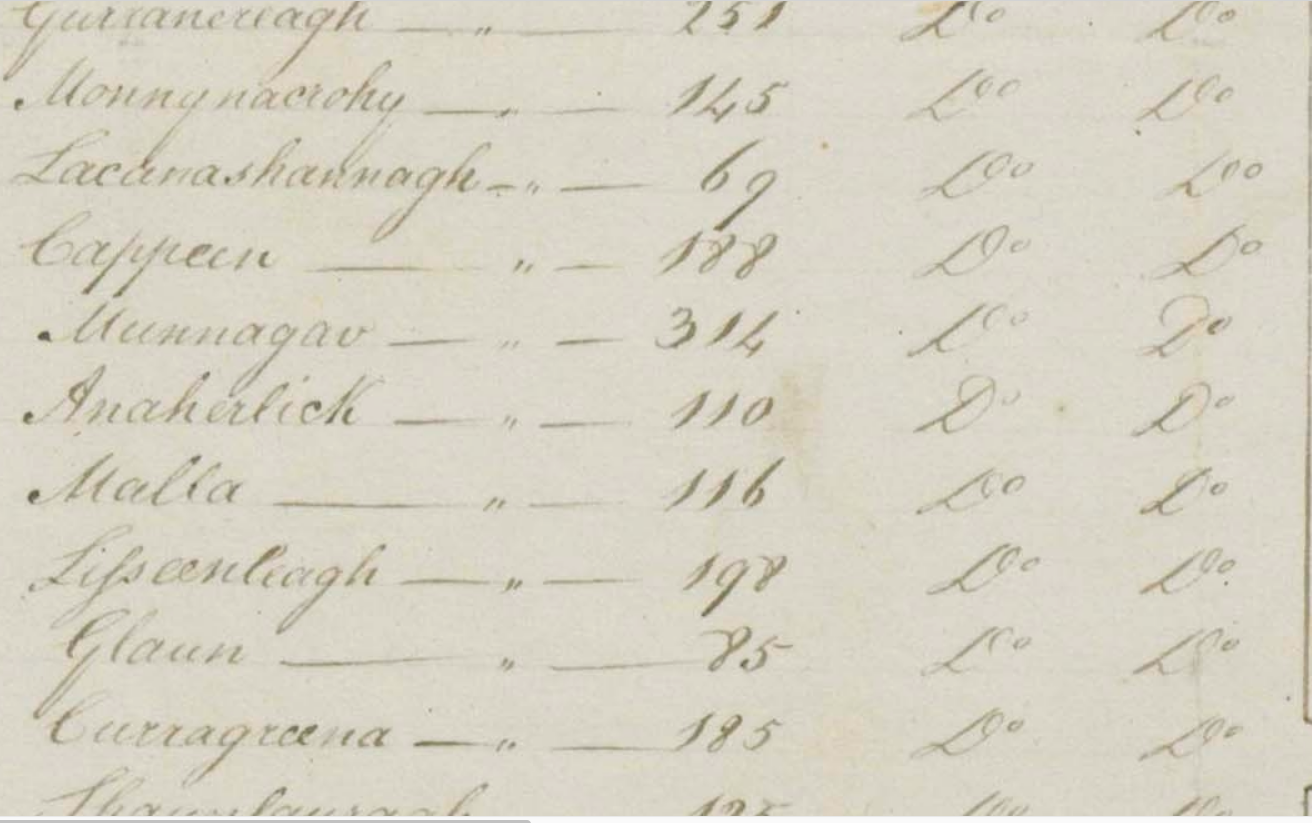 Gurranereagh — " — 251 Do Do
Monnynacrohy — " — 145 Do Do
Lacanashannagh — " — 69 Do Do
Cappeen — " — 188 Do Do
Munnagav — " — 314 Do Do
Anaherlick — " — 110 Do Do
Malla — " — 116 Do Do
Lisseenleagh — " — 198 Do Do
Glaun — " — 85 Do Do
Curragreena — " — 185 Do Do
Do Do